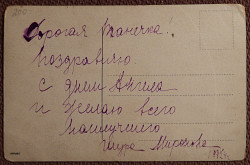 Дорогая Манечка!
Поздравляю
с днем Ангела
и желаю всего
наилучшего
Миронова